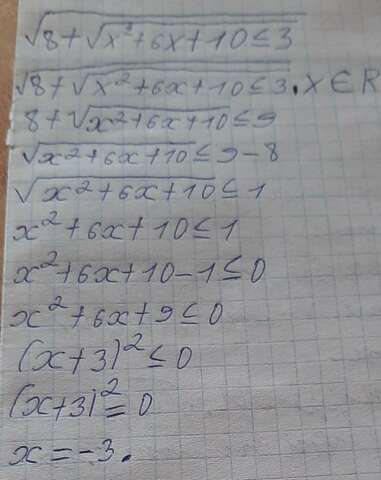 √8+√x²+6x+10≤3
√8+√x²+6x+10≤3, x∈R
8+√x²+6x+10≤9
√x²+6x+10≤9-8
√x²+6x+10≤1
x²+6x+10≤1
x²+6x+10-1≤0
x²+6x+9≤0
(x+3)²≤0
(x+3)²=0
x=-3.